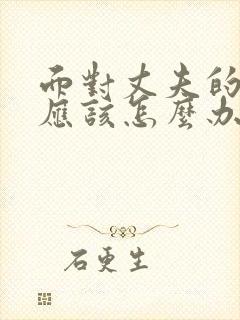 而對丈夫的
應該怎麼办
石更生